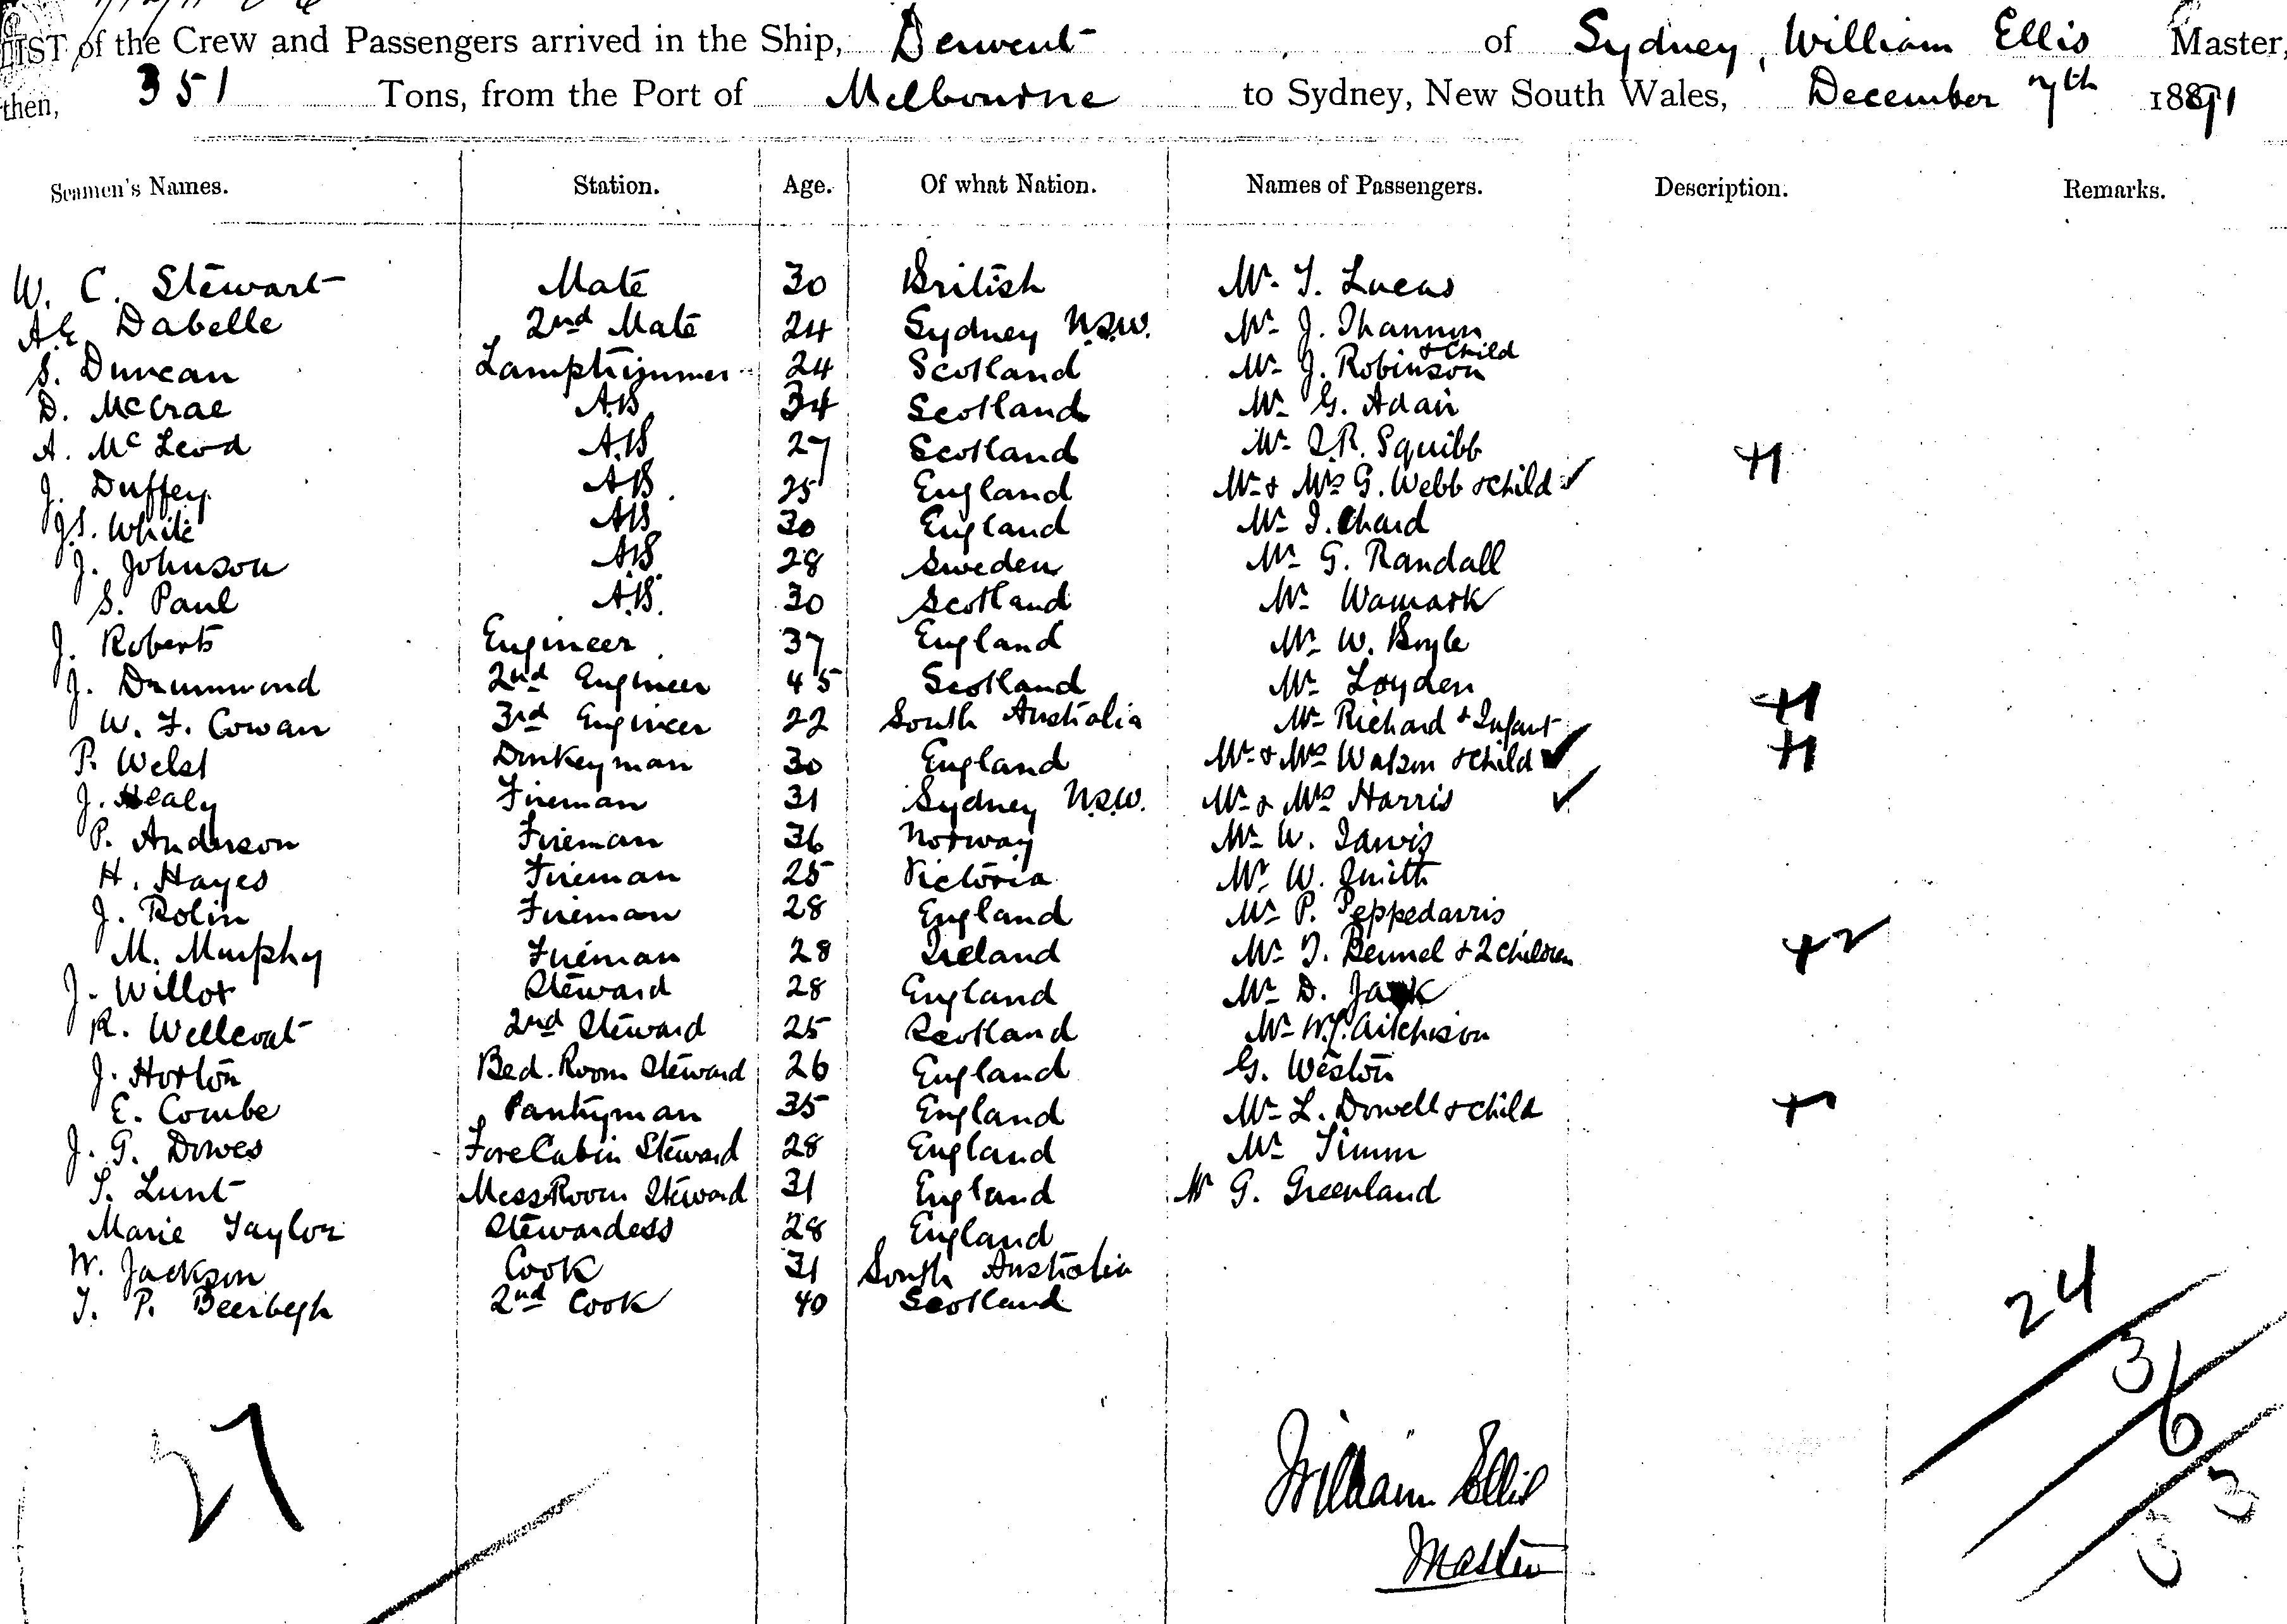 LIST of the Crew and Passengers arrived in the Ship, Derwent of Sydney, William Ellis Master,
then, 351 Tons, from the Port of Melbourne to Sydney, New South Wales, December 7th 1891
Seamen's Names. Station. Age. Of what Nation. Names of Passengers. Description. Remarks.
W. C. Stewart Mate 30 British Mr. T. Lucas
A.E. Dabelle 2nd Mate 24 Sydney N.S.W. Mr J.
S. Duncan Lamptrimmer 24 Scotland Mr J. Robinson & Child
D. McCrae AB 34 Scotland Mr G. Adair
A. McLeod A.B 27 Scotland Mr Squibb
J. Duffey AB 25 England Mr & Mrs G. Webb & child
J.S. White AB 30 England Mr Chard
J. Johnson AB 28 Sweden Mr G. Randall
S. Paul A.B. 30 Scotland Mr
J. Roberts Engineer 37 England Mr W. Boyle
J. Drummond 2nd Engineer 45 Scotland Mr Loyden
W. F. Cowan 3rd Engineer 22 South Australia Mr Richard & Infant
P. Welsh Donkeyman 30 England Mr & Mrs Watson & child
J. Healy Fireman 31 Sydney N.S.W. Mr & Mrs Harris
P. Anderson Fireman 36 Norway Mr W. Jarvis
H. Hayes Fireman 25 Victoria Mr W. Smith
J. Rolin Fireman 28 England Mr P. Peppedarris
M. Murphy Fireman 28 Ireland Mr & 2 children
J. Willox Steward 28 England Mr D. Jack
R. Wellcoat 2nd Steward 25 Scotland Mr Aitchison
J. Horton Bed. Room Steward 26 England G. Weston
E. Combe Pantryman 35 England Mr L. Dowell & child
J. G. Dowes ForeCabin Steward 28 England Mr Timm
T. Lunt MessRoom Steward 31 England Mr G. Greenland
Marie Taylor Stewardess 28 England
W. Jackson Cook 31 South Australia
T. P. 2nd Cook 40 Scotland
24
3
6
27
3
William Ellis
Master